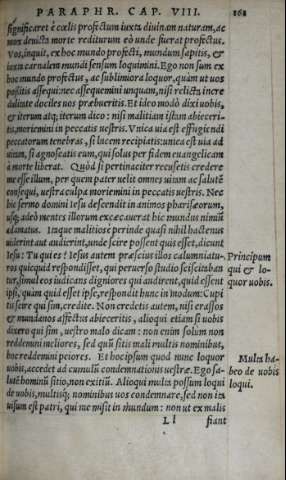 PARAPHR. CAP. VIII. 161
significaret è cœlis profectum iuxta diuinam naturam, ac
mox deuicta morte rediturum eò unde fuerat profectus.
Vos, inquit, ex hoc mundo profecti, mundum sapitis, &
iuxta carnalem mundi sensum loquimini. Ego non sum ex
hoc mundo profectus, ac sublimiora loquor, quàm ut uos
positis assequi: nec assequemini unquam, nisi relicta incre
dulitate dociles uos præbueritis. Et ideo modò dixi uobis,
& iterum atq; iterum dico: nisi malitiam istam abieceri-
tis, moriemini in peccatis uestris. Vnica uia est effugiendi
peccatorum tenebras, si lucem recipiatis: unica est uia ad
uitam, si agnoscatis eum, qui solus per fidem euangelicam
à morte liberat. Quòd si pertinaciter recusetis credere
me esse illum, per quem pater uelit omnes uitam ac salutẽ
consequi, uestra culpa moriemini in peccatis uestris. Nec
hic sermo domini Iesu descendit in animos pharisæorum,
usq; adeò mentes illorum excæcauerat hic mundus nimiũ
adamatus. Itaque malitiose perinde quasi nihil hactenus
uiderint aut audierint, unde scire possent quis esset, dicunt
Iesu: Tu qui es? Iesus autem præscius illos calumniatu-
ros quicquid respondisset, qui peruerso studio sciscitaban
tur, simul eos iudicans digniores qui audirent, quid essent
ipsi, quàm quid esset ipse, respondit hunc in modum: Cupi
tis scire qui sim, credite. Non credetis autem, nisi crassos
& mundanos affectus abieceritis, alioqui etiam si uobis
dixero qui sim, uestro malo dicam: non enim solum non
reddemini meliores, sed quũ sitis mali multis nominibus,
hoc reddemini peiores. Et hoc ipsum quod nunc loquor
uobis, accedet ad cumulũ condemnationis uestræ. Ego sa-
lutẽ hominũ sitio, non exitiũ. Alioqui multa possum loqui
de uobis, multisq; nominibus uos condemnare, sed non ita
uisum est patri, qui me misit in mundum: non ut ex malis
Ll fiant
Principum
qui & lo-
quor uobis.
Multa ha-
beo de uobis
loqui.